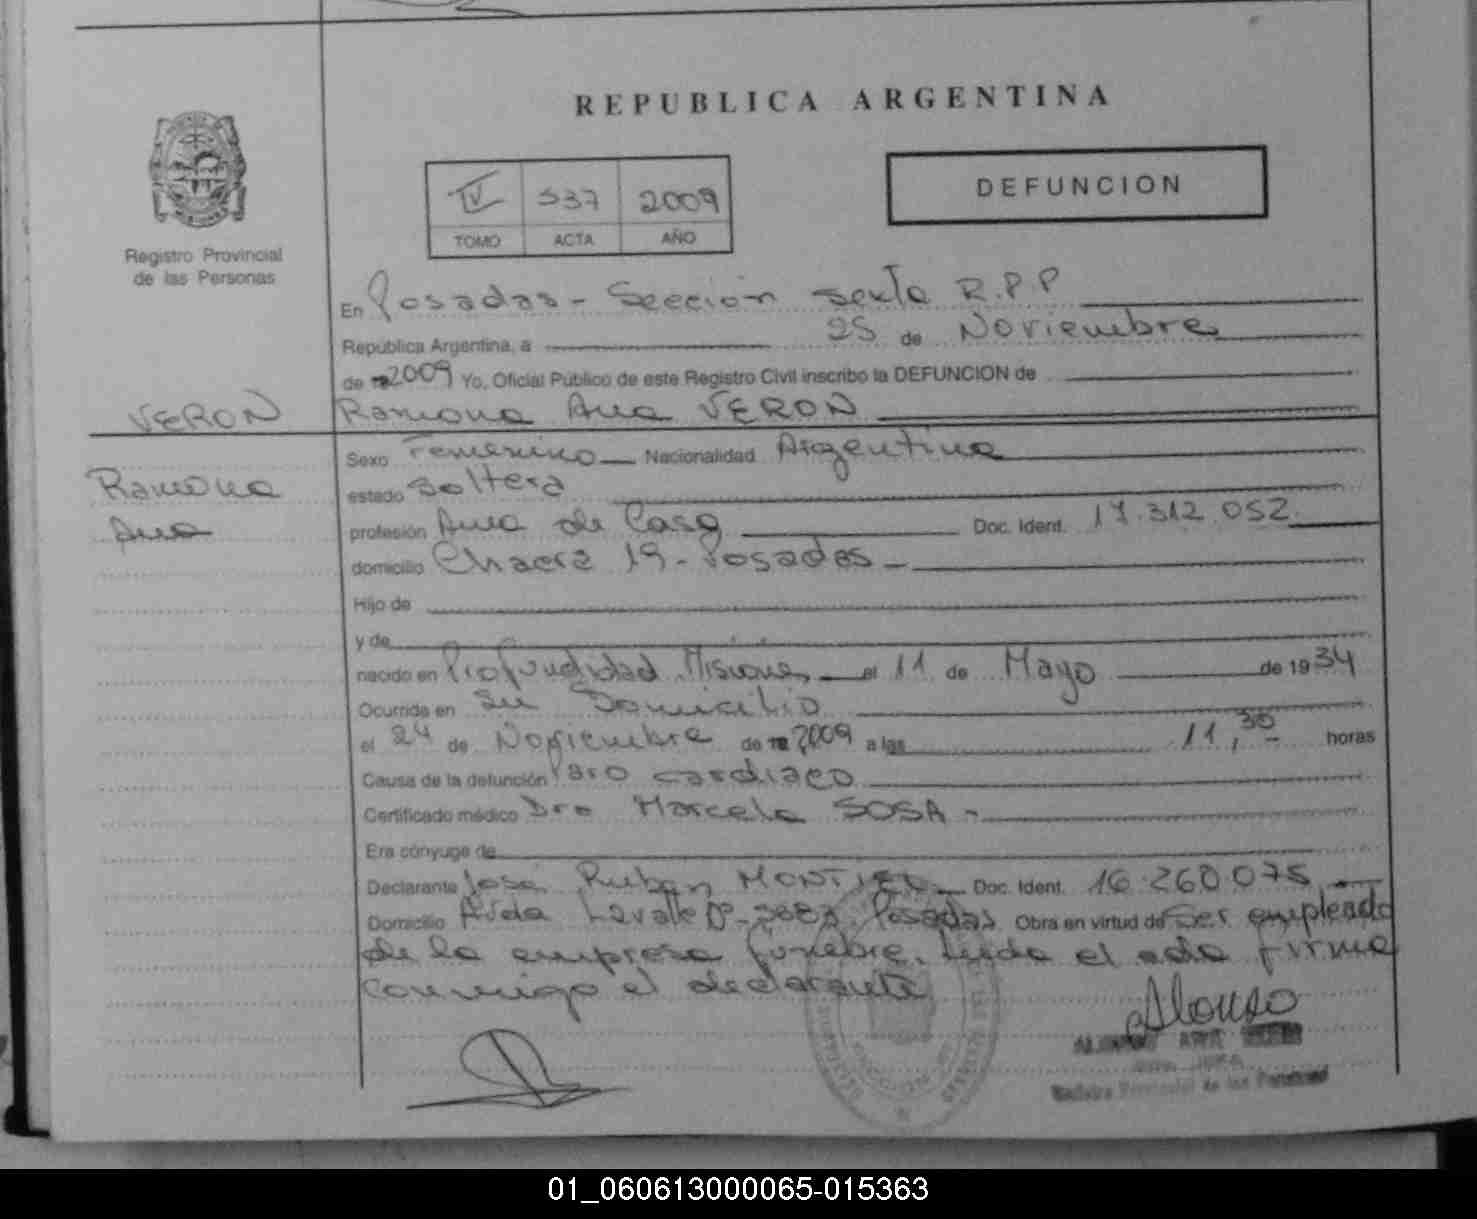 REPUBLICA ARGENTINA
IV 537 2009
TOMO ACTA AÑO
DEFUNCION
Registro Provincial
de las Personas
En Posadas - Sección sexta R.P.P
República Argentina, a 25 de Noviembre
de 2009 Yo, Oficial Público de este Registro Civil inscribo la DEFUNCION de
VERON Ramona Ana VERON
Sexo Femenino Nacionalidad Argentina
Ramona
estado Soltera
Ana
profesión Ama de Casa Doc. Ident. 17.312.052
domicilio Chacra 19 - Posadas -
Hijo de
y de
nacido en Profundidad Misiones el 11 de Mayo de 1934
Ocurrida en Su Domicilio
el 24 de Noviembre de 2009 a las 11,30 horas
Causa de la defunción Paro cardiaco
Certificado médico Dra Marcela SOSA -
Era cónyuge de
Declarante José Ruben MONTIEL Doc. Ident. 16.260.075
Domicilio Avda Lavalle Nº Posadas Obra en virtud de Ser empleado
de la empresa funebre. Leida el acta firma
conmigo el declarante
Alonso
Registro Provincial de las Personas
01_060613000065-015363